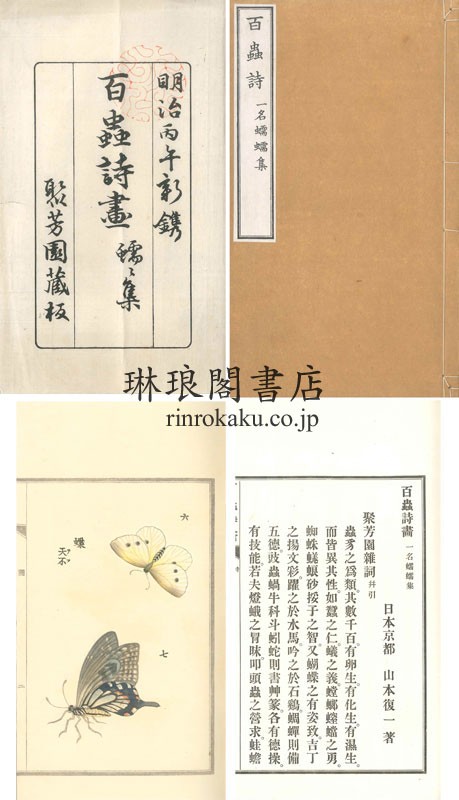 明治丙午新鐫
百蟲詩畫 蠕〻集
聚芳園蔵板
百蟲詩 一名蠕蠕集
琳琅閣書店
rinrokaku.co.jp
六
蝶
七
百蟲詩畫 一名蠕蠕集
日本京都 山本復一 著
聚芳園雜詞 幷引
蟲豸之爲類。其數千百。有卵生。有化生。有濕生。
而皆異其性。如蠶之仁。蟻之義。螳螂蟷蠰之勇。
之揚文彩。躍之於水馬。吟之於石鷄。蜩蟬則備
五德。豉蟲蝸牛科斗蚓蛇則書艸篆。各有德操。
有技能。若夫燈蛾之冒昧。叩頭蟲之營求。蛙蟾